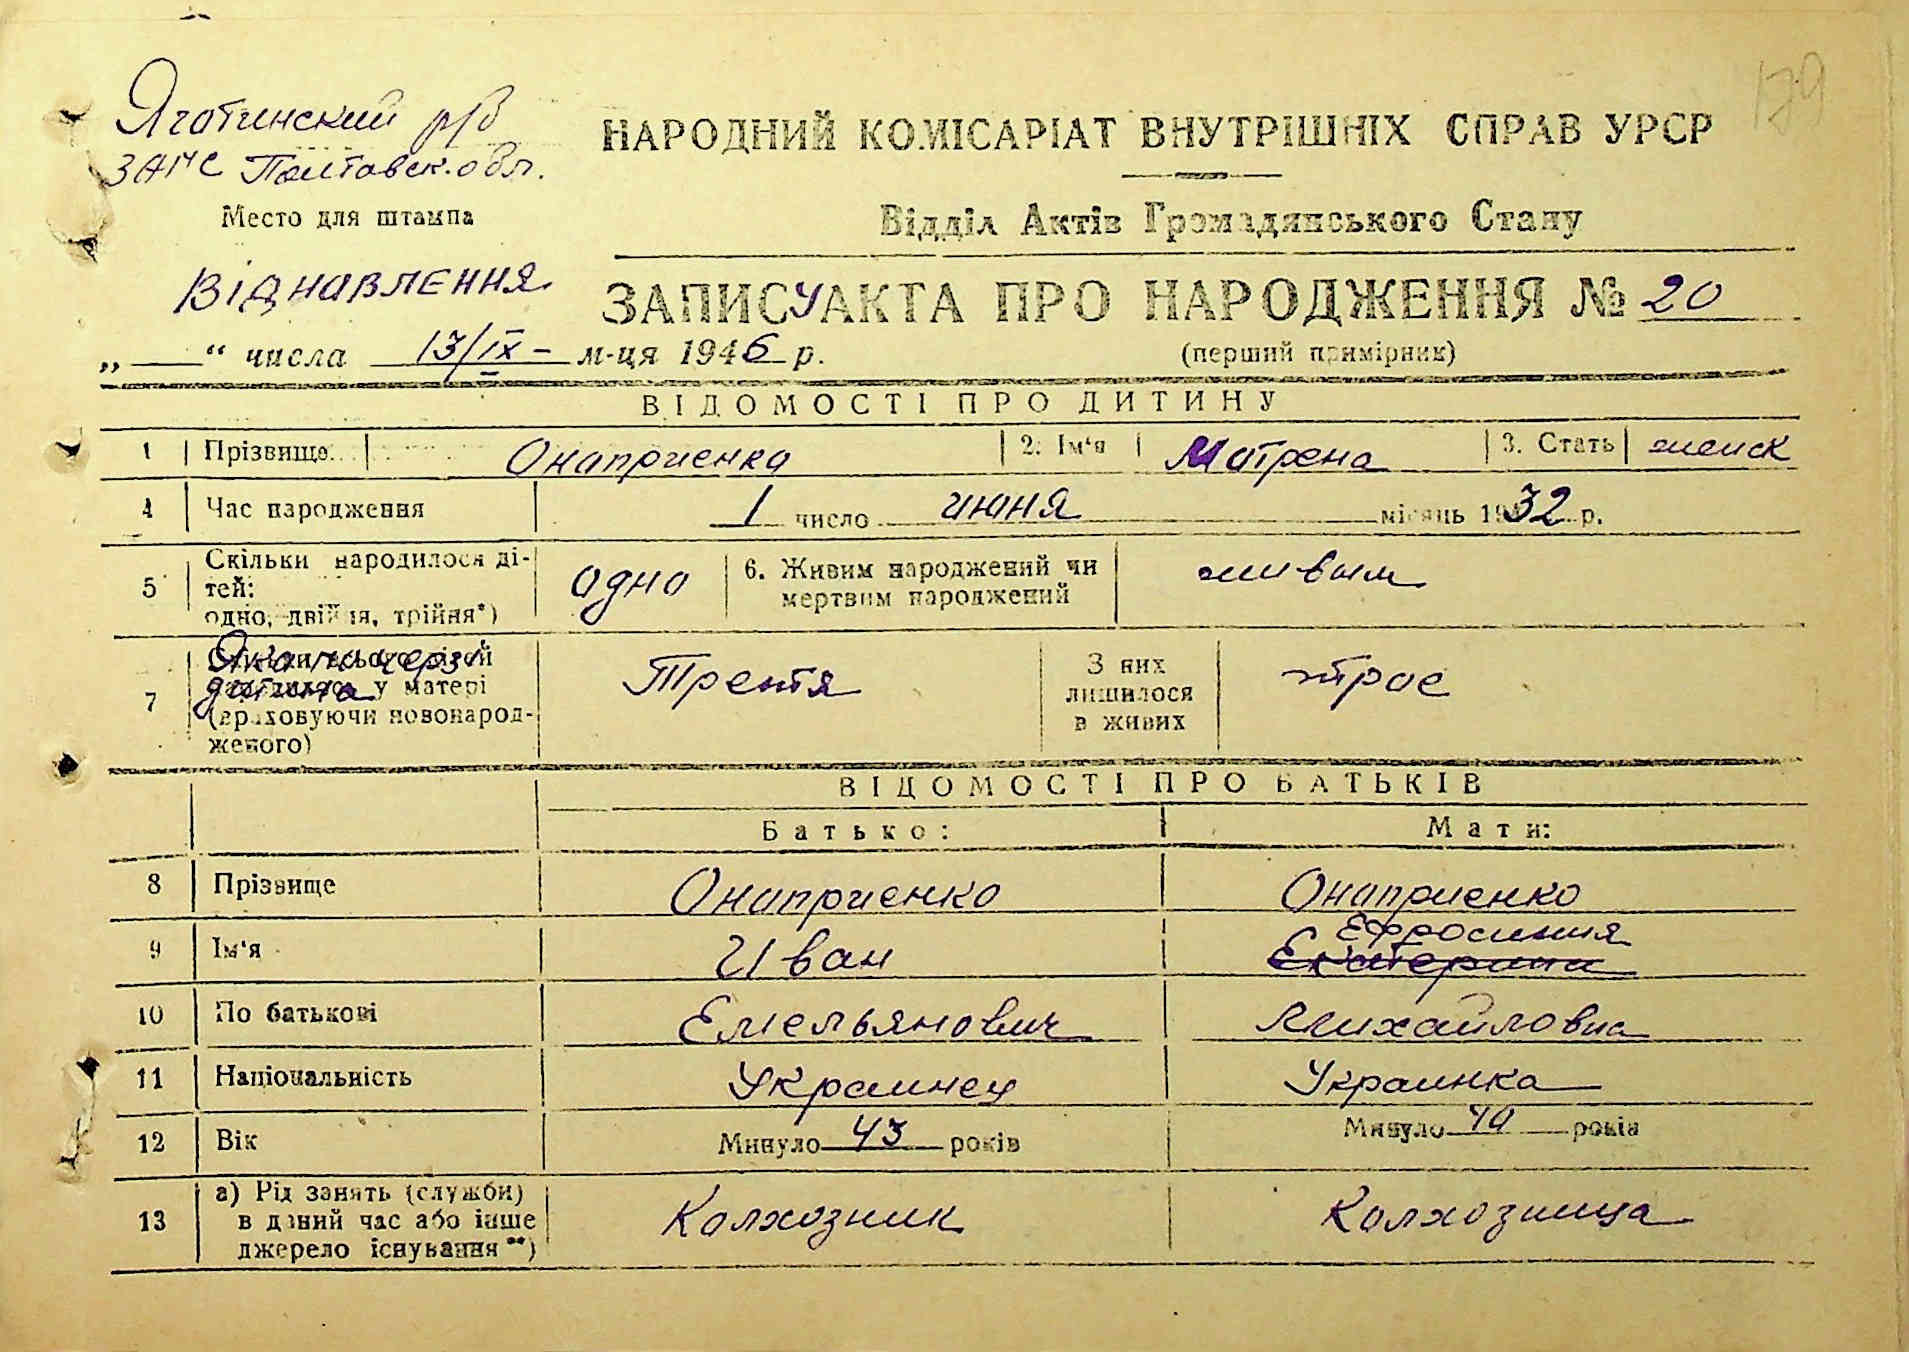 179
Яготинский р/б
ЗАГС Полтавск. обл.
Место для штампа
НАРОДНИЙ КОМІСАРІАТ ВНУТРІШНІХ СПРАВ УРСР
Відділ Актів Громадянського Стану
Віднавлення
ЗАПИСУ АКТА ПРО НАРОДЖЕННЯ № 20
„ — “ числа 13/IX - м-ця 1946 р.
(перший примірник)
ВІДОМОСТІ ПРО ДИТИНУ
1 Прізвище Онаприенко 2. Ім‘я Матрена 3. Стать женск
4 Час народження 1 число июня місяць 1932 р.
5 Скільки народилося ді-
тей:
одно, двійня, трійня*)
одно
6. Живим народжений чи
мертвим народжений
живым
7 Яка по черзі
дитина у матері
(враховуючи новонарод-
женого)
Третя
З них
лишилося
в живих
трое
ВІДОМОСТІ ПРО БАТЬКІВ
Батько: Мати:
8 Прізвище Онаприенко Онаприенко
Ефросиния
9 Ім‘я Иван Екатерина
10 По батькові Емельянович Михайловна
11 Національність Украинец Украинка
12 Вік Минуло 43 років Минуло 40 років
13 а) Рід занять (служби)
в даний час або інше
джерело існування**)
Колхозник Колхозница